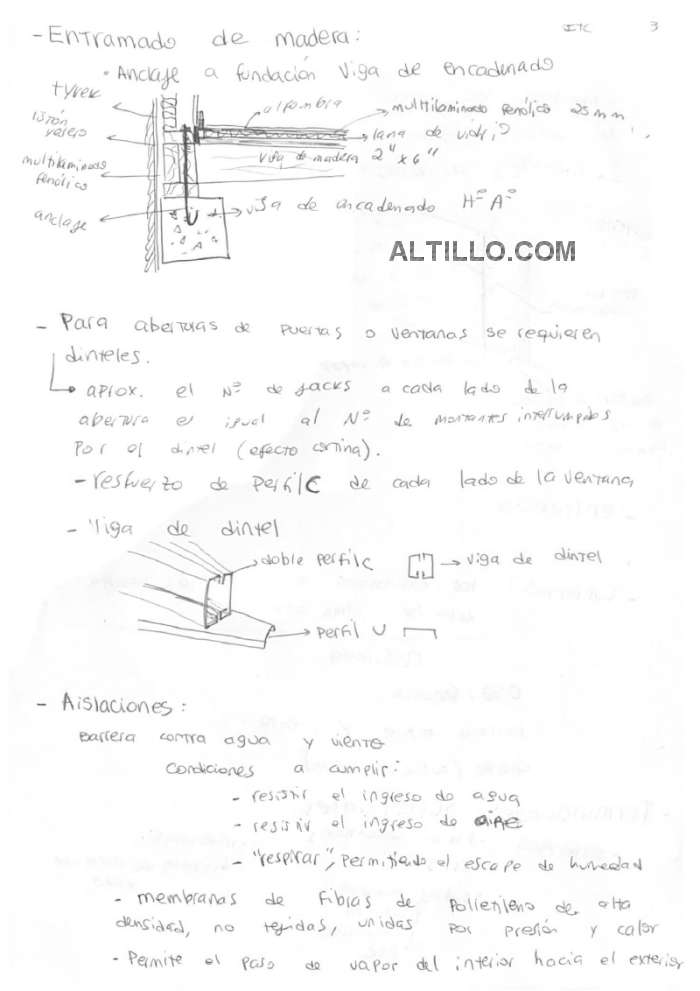 ITC 3
- Entramado de madera:
• Anclaje a fundación Viga de encadenado
tyvek
alfombra
multilaminado fenólico 25mm
listón yesero
lana de vidrio
viga de madera 2" x 6"
multilaminado
fenólico
anclaje
viga de encadenado H° A°
ALTILLO.COM
- Para aberturas de puertas o ventanas se requieren
dinteles.
aprox. el N° de jacks a cada lado de la
abertura es igual al N° de montantes interrumpidos
por el dintel (efecto cortina).
- resfuerzo de Perfil C de cada lado de la ventana
- Viga de dintel
doble perfil C
viga de dintel
perfil U
- Aislaciones:
Barrera contra agua y viento
Condiciones a cumplir:
- resistir el ingreso de agua
- resistir el ingreso de aire
- "respirar", permitiendo el escape de humedad
- membranas de Fibras de Polietileno de alta
densidad, no tejidas, unidas por presión y calor
- Permite el paso de vapor del interior hacia el exterior